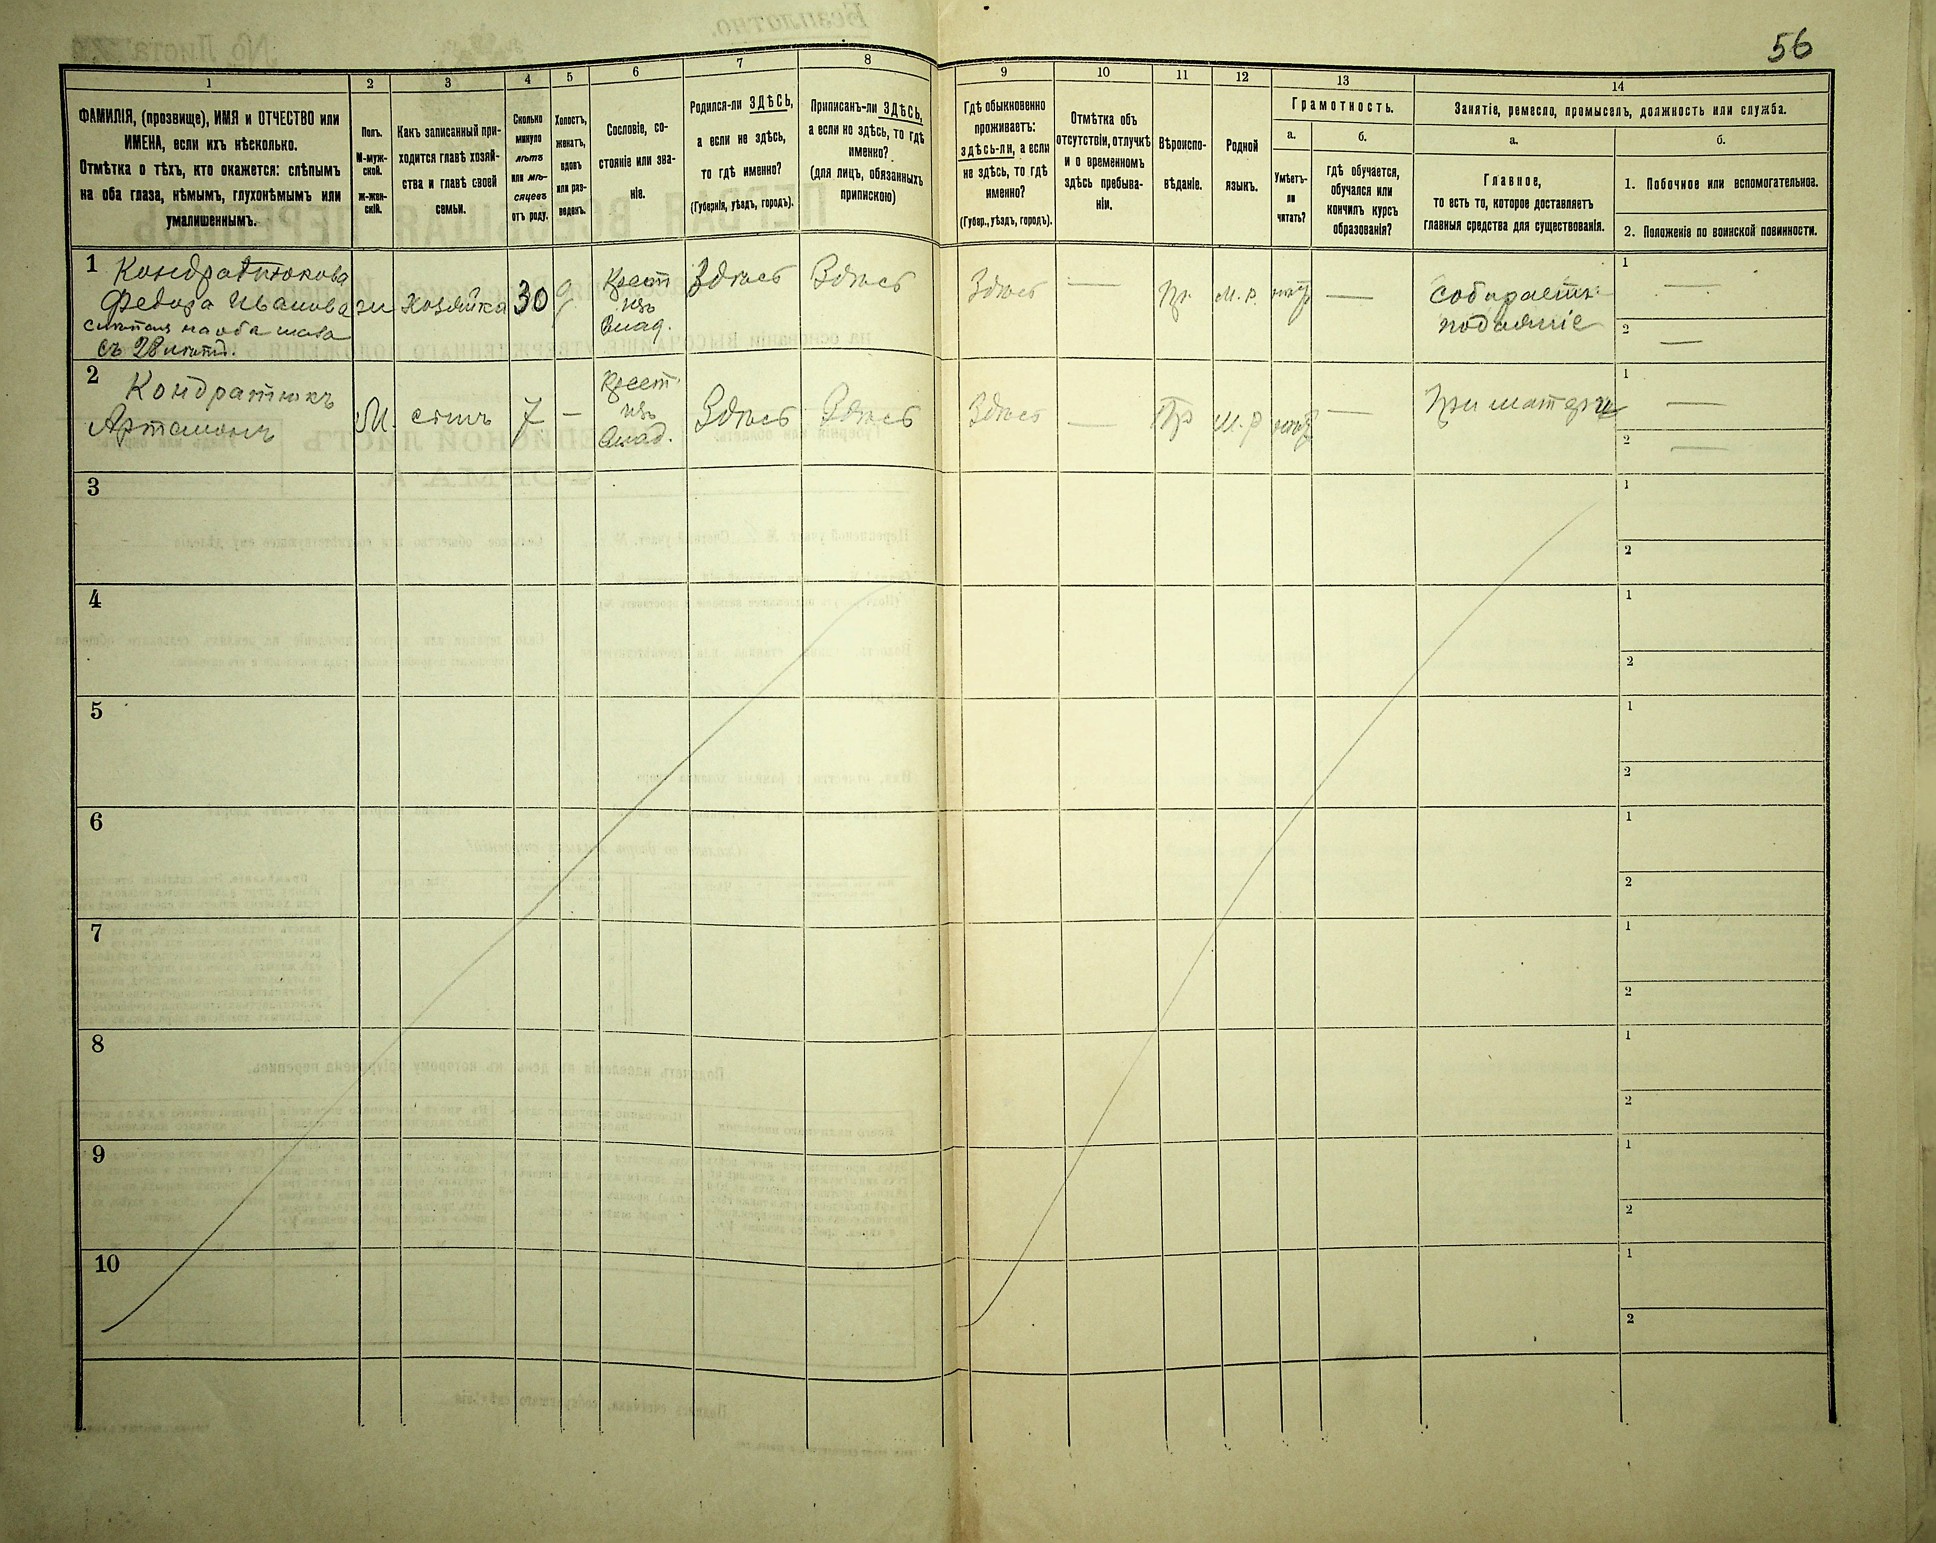 56
1
2
3
4
5
6
7
8
9
10
11
12
13
14
ФАМИЛІЯ, (прозвище), ИМЯ и ОТЧЕСТВО или
ИМЕНА, если ихъ нѣсколько.
Отмѣтка о тѣхъ, кто окажется: слѣпымъ
на оба глаза, нѣмымъ, глухонѣмымъ или
умалишеннымъ.
Полъ.
М-муж-
ской.
ж-жен-
скій.
Какъ записанный при-
ходится главѣ хозяй-
ства и главѣ своей
семьи.
Сколько
минуло
лѣтъ
или мѣ-
сяцевъ
отъ роду.
Холостъ,
женатъ,
вдовъ
или раз-
веденъ.
Сословіе, со-
стояніе или зва-
ніе.
Родился-ли ЗДѢСЬ,
а если не здѣсь,
то гдѣ именно?
(Губернія, уѣздъ, городъ).
Приписанъ-ли ЗДѢСЬ,
а если не здѣсь, то гдѣ
именно?
(для лицъ, обязанныхъ
припискою)
Гдѣ обыкновенно
проживаетъ:
здѣсь-ли, а если
не здѣсь, то гдѣ
именно?
(Губер., уѣздъ, городъ).
Отмѣтка объ
отсутствіи, отлучкѣ
и о временномъ
здѣсь пребыва-
ніи.
Вѣроиспо-
вѣданіе.
Родной
языкъ.
Грамотность.
а.
б.
Умѣетъ-
ли
читать?
гдѣ обучается,
обучался или
кончилъ курсъ
образованія?
Занятіе, ремесло, промыселъ, должность или служба.
а.
б.
Главное,
то есть то, которое доставляетъ
главныя средства для существованія.
1. Побочное или вспомогательное.
2. Положеніе по воинской повинности.
1 Кондратюкова
Федора Иванова
слѣпая на оба глаза
съ 28 лѣтъ.
ж хозяйка 30
Крест
изъ
влад.
Здѣсь Здѣсь Здѣсь — Пр. М. Р. нѣтъ —
собираетъ
подаяніе
1 —
2 —
2 Кондратюкъ
Артамонъ
М. сынъ 7 —
Крест.
изъ
влад.
Здѣсь Здѣсь Здѣсь — Пр М. Р нѣтъ —
При матери
1 —
2 —
3
1
2
4
1
2
5
1
2
6
1
2
7
1
2
8
1
2
9
1
2
10
1
2